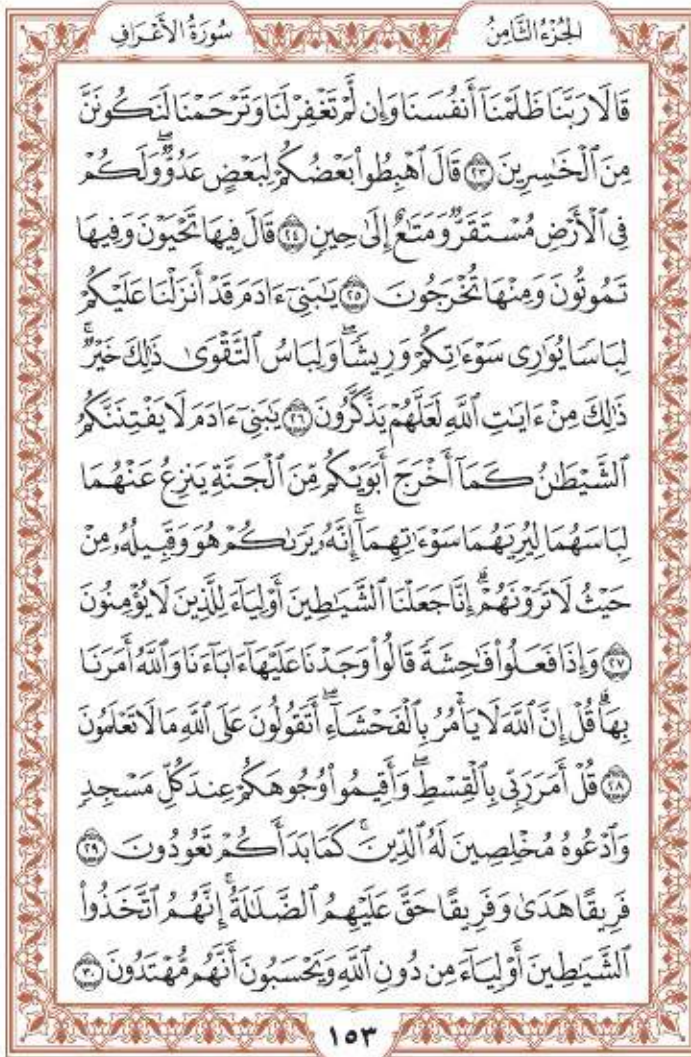 سُورَةُ الأَعْرَافِ
الجُزْءُ الثَّامِنُ
قَالَا رَبَّنَا ظَلَمْنَآ أَنفُسَنَا وَإِن لَّمْ تَغْفِرْ لَنَا وَتَرْحَمْنَا لَنَكُونَنَّ
مِنَ ٱلْخَـٰسِرِينَ ٢٣ قَالَ ٱهْبِطُوا۟ بَعْضُكُمْ لِبَعْضٍ عَدُوٌّ ۖ وَلَكُمْ
فِى ٱلْأَرْضِ مُسْتَقَرٌّ وَمَتَـٰعٌ إِلَىٰ حِينٍ ٢٤ قَالَ فِيهَا تَحْيَوْنَ وَفِيهَا
تَمُوتُونَ وَمِنْهَا تُخْرَجُونَ ٢٥ يَـٰبَنِىٓ ءَادَمَ قَدْ أَنزَلْنَا عَلَيْكُمْ
لِبَاسًا يُوَٰرِى سَوْءَٰتِكُمْ وَرِيشًا ۖ وَلِبَاسُ ٱلتَّقْوَىٰ ذَٰلِكَ خَيْرٌ ۚ
ذَٰلِكَ مِنْ ءَايَـٰتِ ٱللَّهِ لَعَلَّهُمْ يَذَّكَّرُونَ ٢٦ يَـٰبَنِىٓ ءَادَمَ لَا يَفْتِنَنَّكُمُ
ٱلشَّيْطَـٰنُ كَمَآ أَخْرَجَ أَبَوَيْكُم مِّنَ ٱلْجَنَّةِ يَنزِعُ عَنْهُمَا
لِبَاسَهُمَا لِيُرِيَهُمَا سَوْءَٰتِهِمَآ ۗ إِنَّهُۥ يَرَىٰكُمْ هُوَ وَقَبِيلُهُۥ مِنْ
حَيْثُ لَا تَرَوْنَهُمْ ۗ إِنَّا جَعَلْنَا ٱلشَّيَـٰطِينَ أَوْلِيَآءَ لِلَّذِينَ لَا يُؤْمِنُونَ
٢٧ وَإِذَا فَعَلُوا۟ فَـٰحِشَةً قَالُوا۟ وَجَدْنَا عَلَيْهَآ ءَابَآءَنَا وَٱللَّهُ أَمَرَنَا
بِهَا ۗ قُلْ إِنَّ ٱللَّهَ لَا يَأْمُرُ بِٱلْفَحْشَآءِ ۖ أَتَقُولُونَ عَلَى ٱللَّهِ مَا لَا تَعْلَمُونَ
٢٨ قُلْ أَمَرَ رَبِّى بِٱلْقِسْطِ ۖ وَأَقِيمُوا۟ وُجُوهَكُمْ عِندَ كُلِّ مَسْجِدٍ
وَٱدْعُوهُ مُخْلِصِينَ لَهُ ٱلدِّينَ ۚ كَمَا بَدَأَكُمْ تَعُودُونَ ٢٩
فَرِيقًا هَدَىٰ وَفَرِيقًا حَقَّ عَلَيْهِمُ ٱلضَّلَـٰلَةُ ۗ إِنَّهُمُ ٱتَّخَذُوا۟
ٱلشَّيَـٰطِينَ أَوْلِيَآءَ مِن دُونِ ٱللَّهِ وَيَحْسَبُونَ أَنَّهُم مُّهْتَدُونَ ٣٠
١٥٣